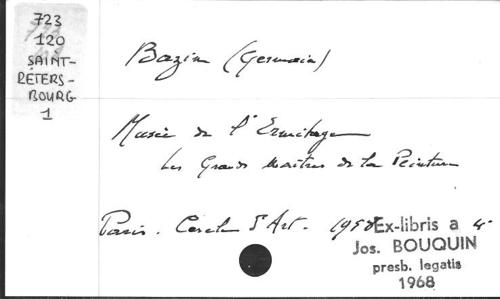 723
120
SAINT-
PÉTERS-
BOURG
1
Bazin (Germain)
Musée de l'Ermitage
Les Grands Maîtres de la Peinture
Paris. Cercle d'Art. 1958 4°
Ex-libris a
Jos. BOUQUIN
presb. legatis
1968